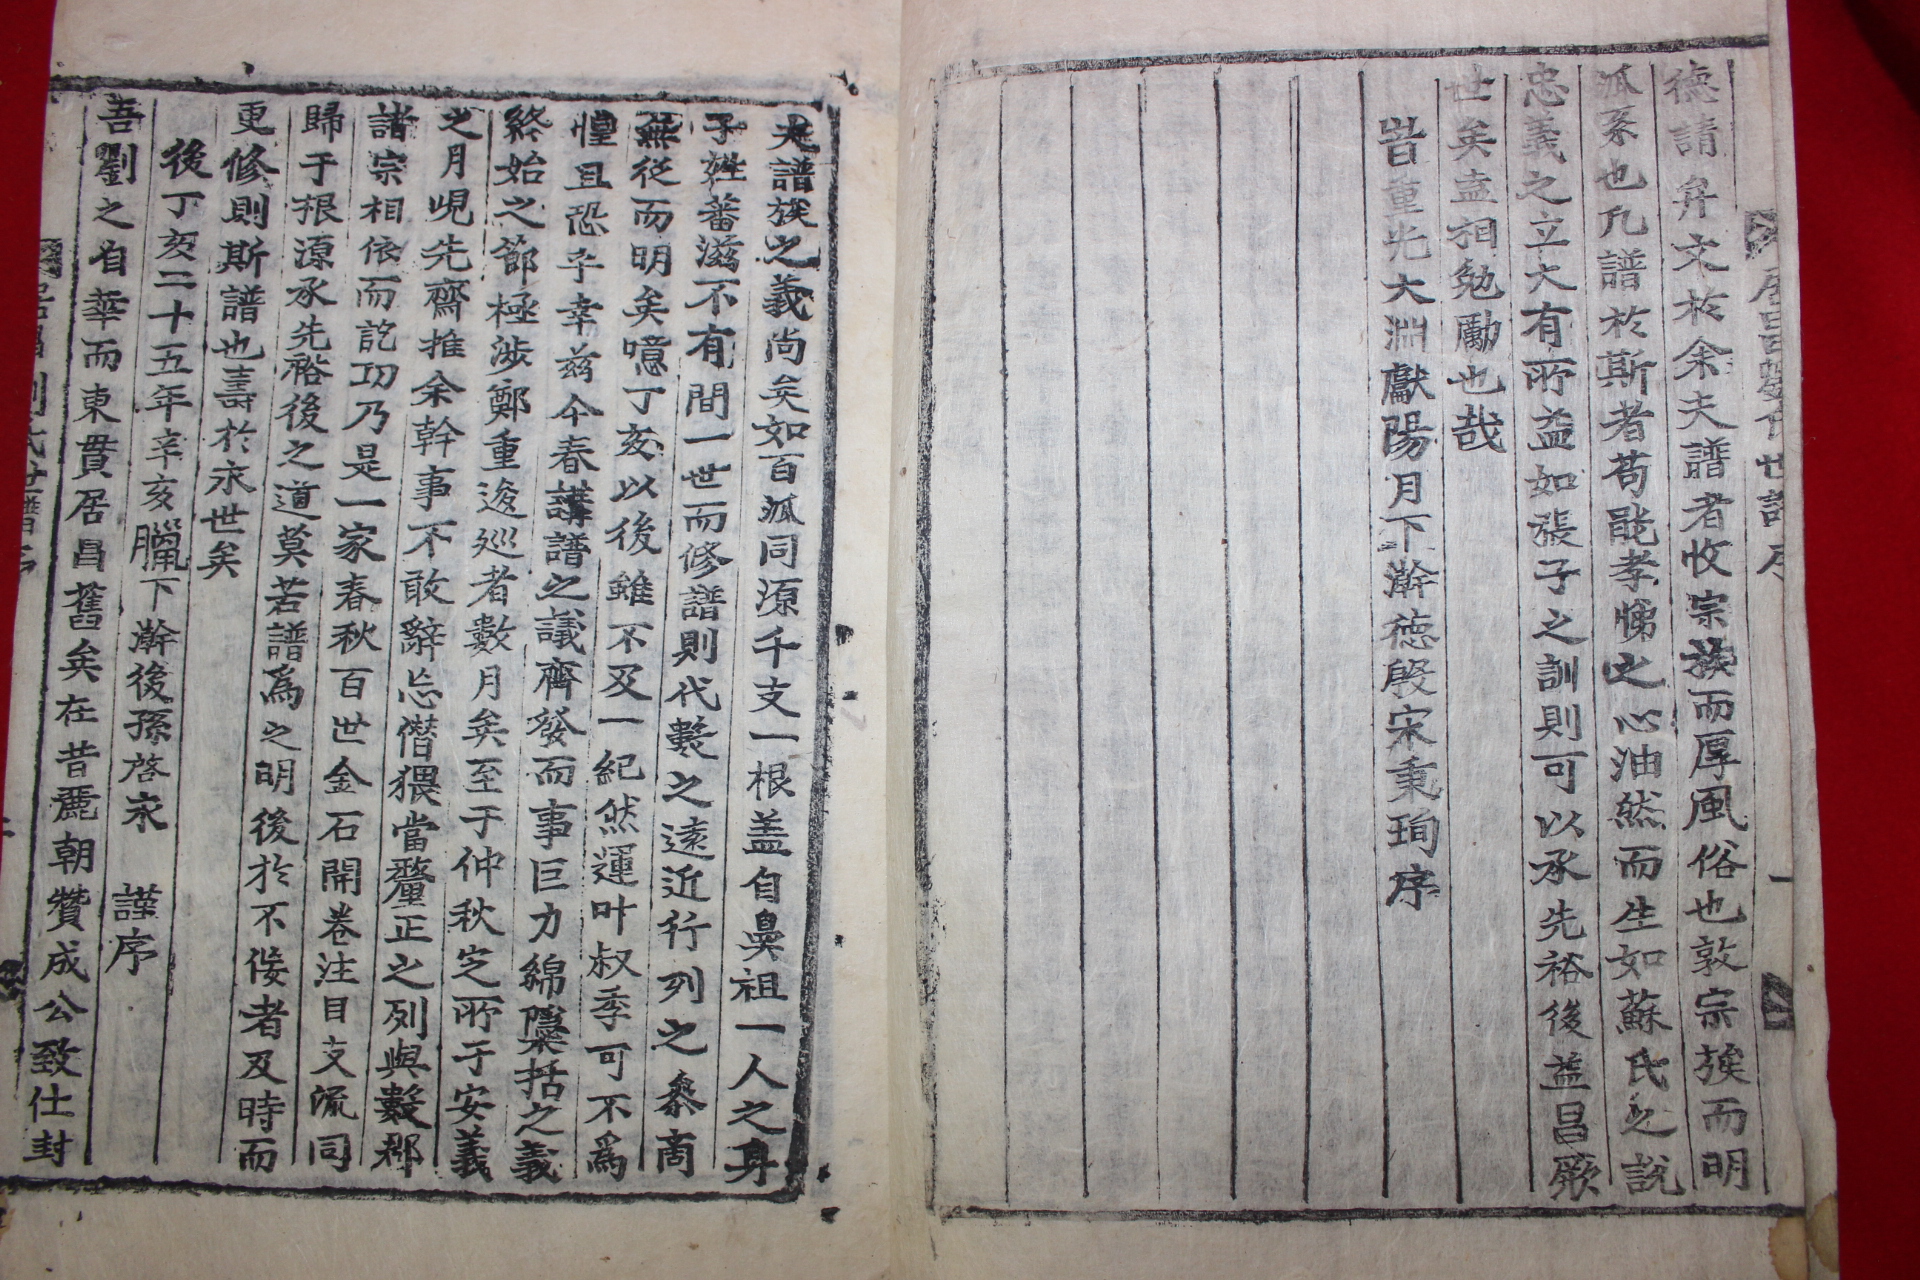 德請弁文於余夫譜者收宗族而厚風俗也敦宗族而明
派系也凡譜於斯者苟能孝悌之心油然而生如蘇氏之說
忠義之立大有所益如張子之訓則可以承先裕後益昌厥
世矣盍相勉勵也哉
旹重光大淵獻陽月下澣德殷宋秉珣序
夫譜族之義尚矣如百派同源千支一根盖自鼻祖一人之身
子姓蕃滋不有間一世而修譜則代數之遠近行列之叅商
無從而明矣噫丁亥以後雖不及一紀然運叶叔季可不爲
惶且恐乎幸玆今春講譜之議齊發而事巨力綿櫽括之義
終始之節極涉鄭重逡巡者數月矣至于仲秋定所于安義
之月峴先齋推余幹事不敢辭忘僭猥當釐正之列與數郡
諸宗相依而訖功乃是一家春秋百世金石開卷注目支流同
歸于根源承先裕後之道莫若譜爲之明後於不佞者及時而
更修則斯譜也壽於永世矣
後丁亥二十五年辛亥臘下澣後孫啓永 謹序
吾劉之自華而東貫居昌舊矣在昔麗朝贊成公致仕封